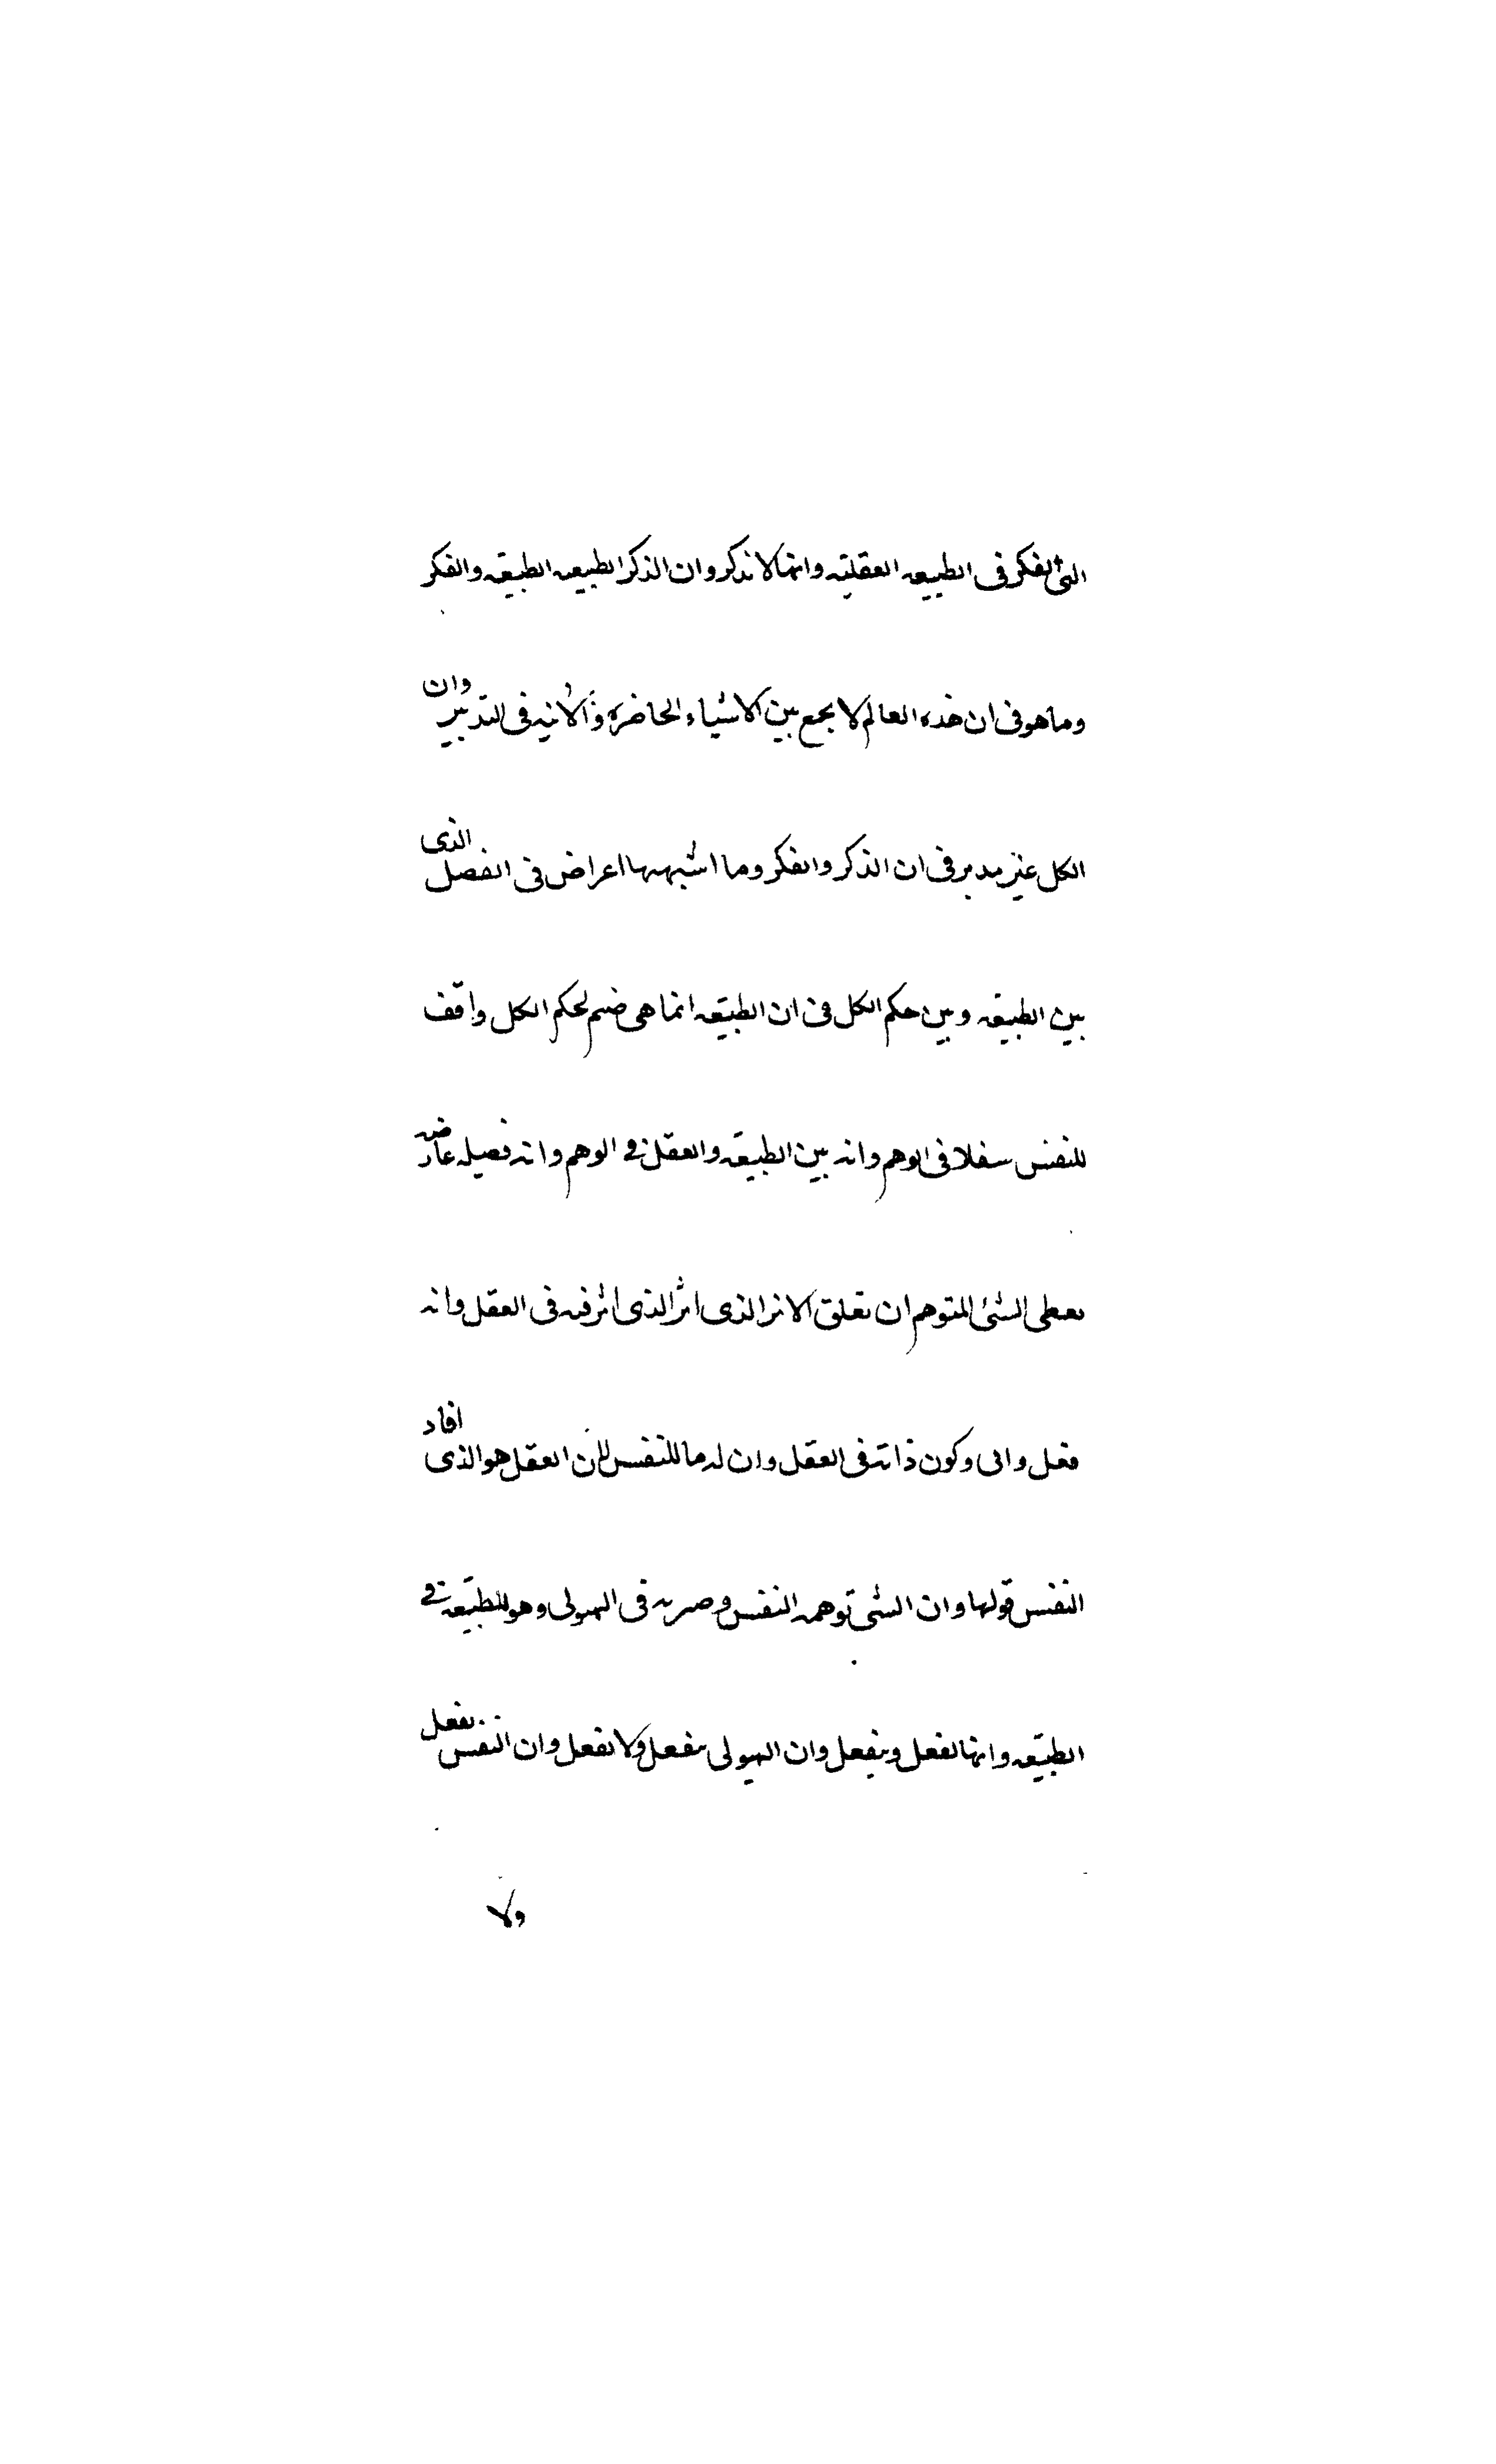 التى الفكر فى الطبيعه العقليه وانها لا تذكر وان الذكر الطبيعه الطبيعه والفكر
وما هو فى ان هذه العالم لا يجمع بين الاشياء الحاضره والانيه فى التدبير وان
الكل غير مدبر فى ان الذكر والفكر وما اشبهها اعراض فى الفصل الذى
بين الطبيعه وبين حكم الكل فى ان الطبيعه انما هى ضم لحكم الكل واقف
للنفس سفلا فى الوهم وانه بين الطبيعه والعقل فى الوهم وانه فصيله عارضه
يعطى الشئ المتوهم ان يعلق الاثر الذى اثر الذى اثر فيه فى العقل وانه
فعل وانى وكون ذاته فى العقل وان له ما للنفس لان العقل هو الذى افاد
النفس قولها وان الشى توهمه النفس وصريه فى الهيولى وهو للطبيعه فى
الطبيعه وانها تفعل وينفعل وان الهيولى ينفعل ولا تفعل وان النفس تفعل
ولا